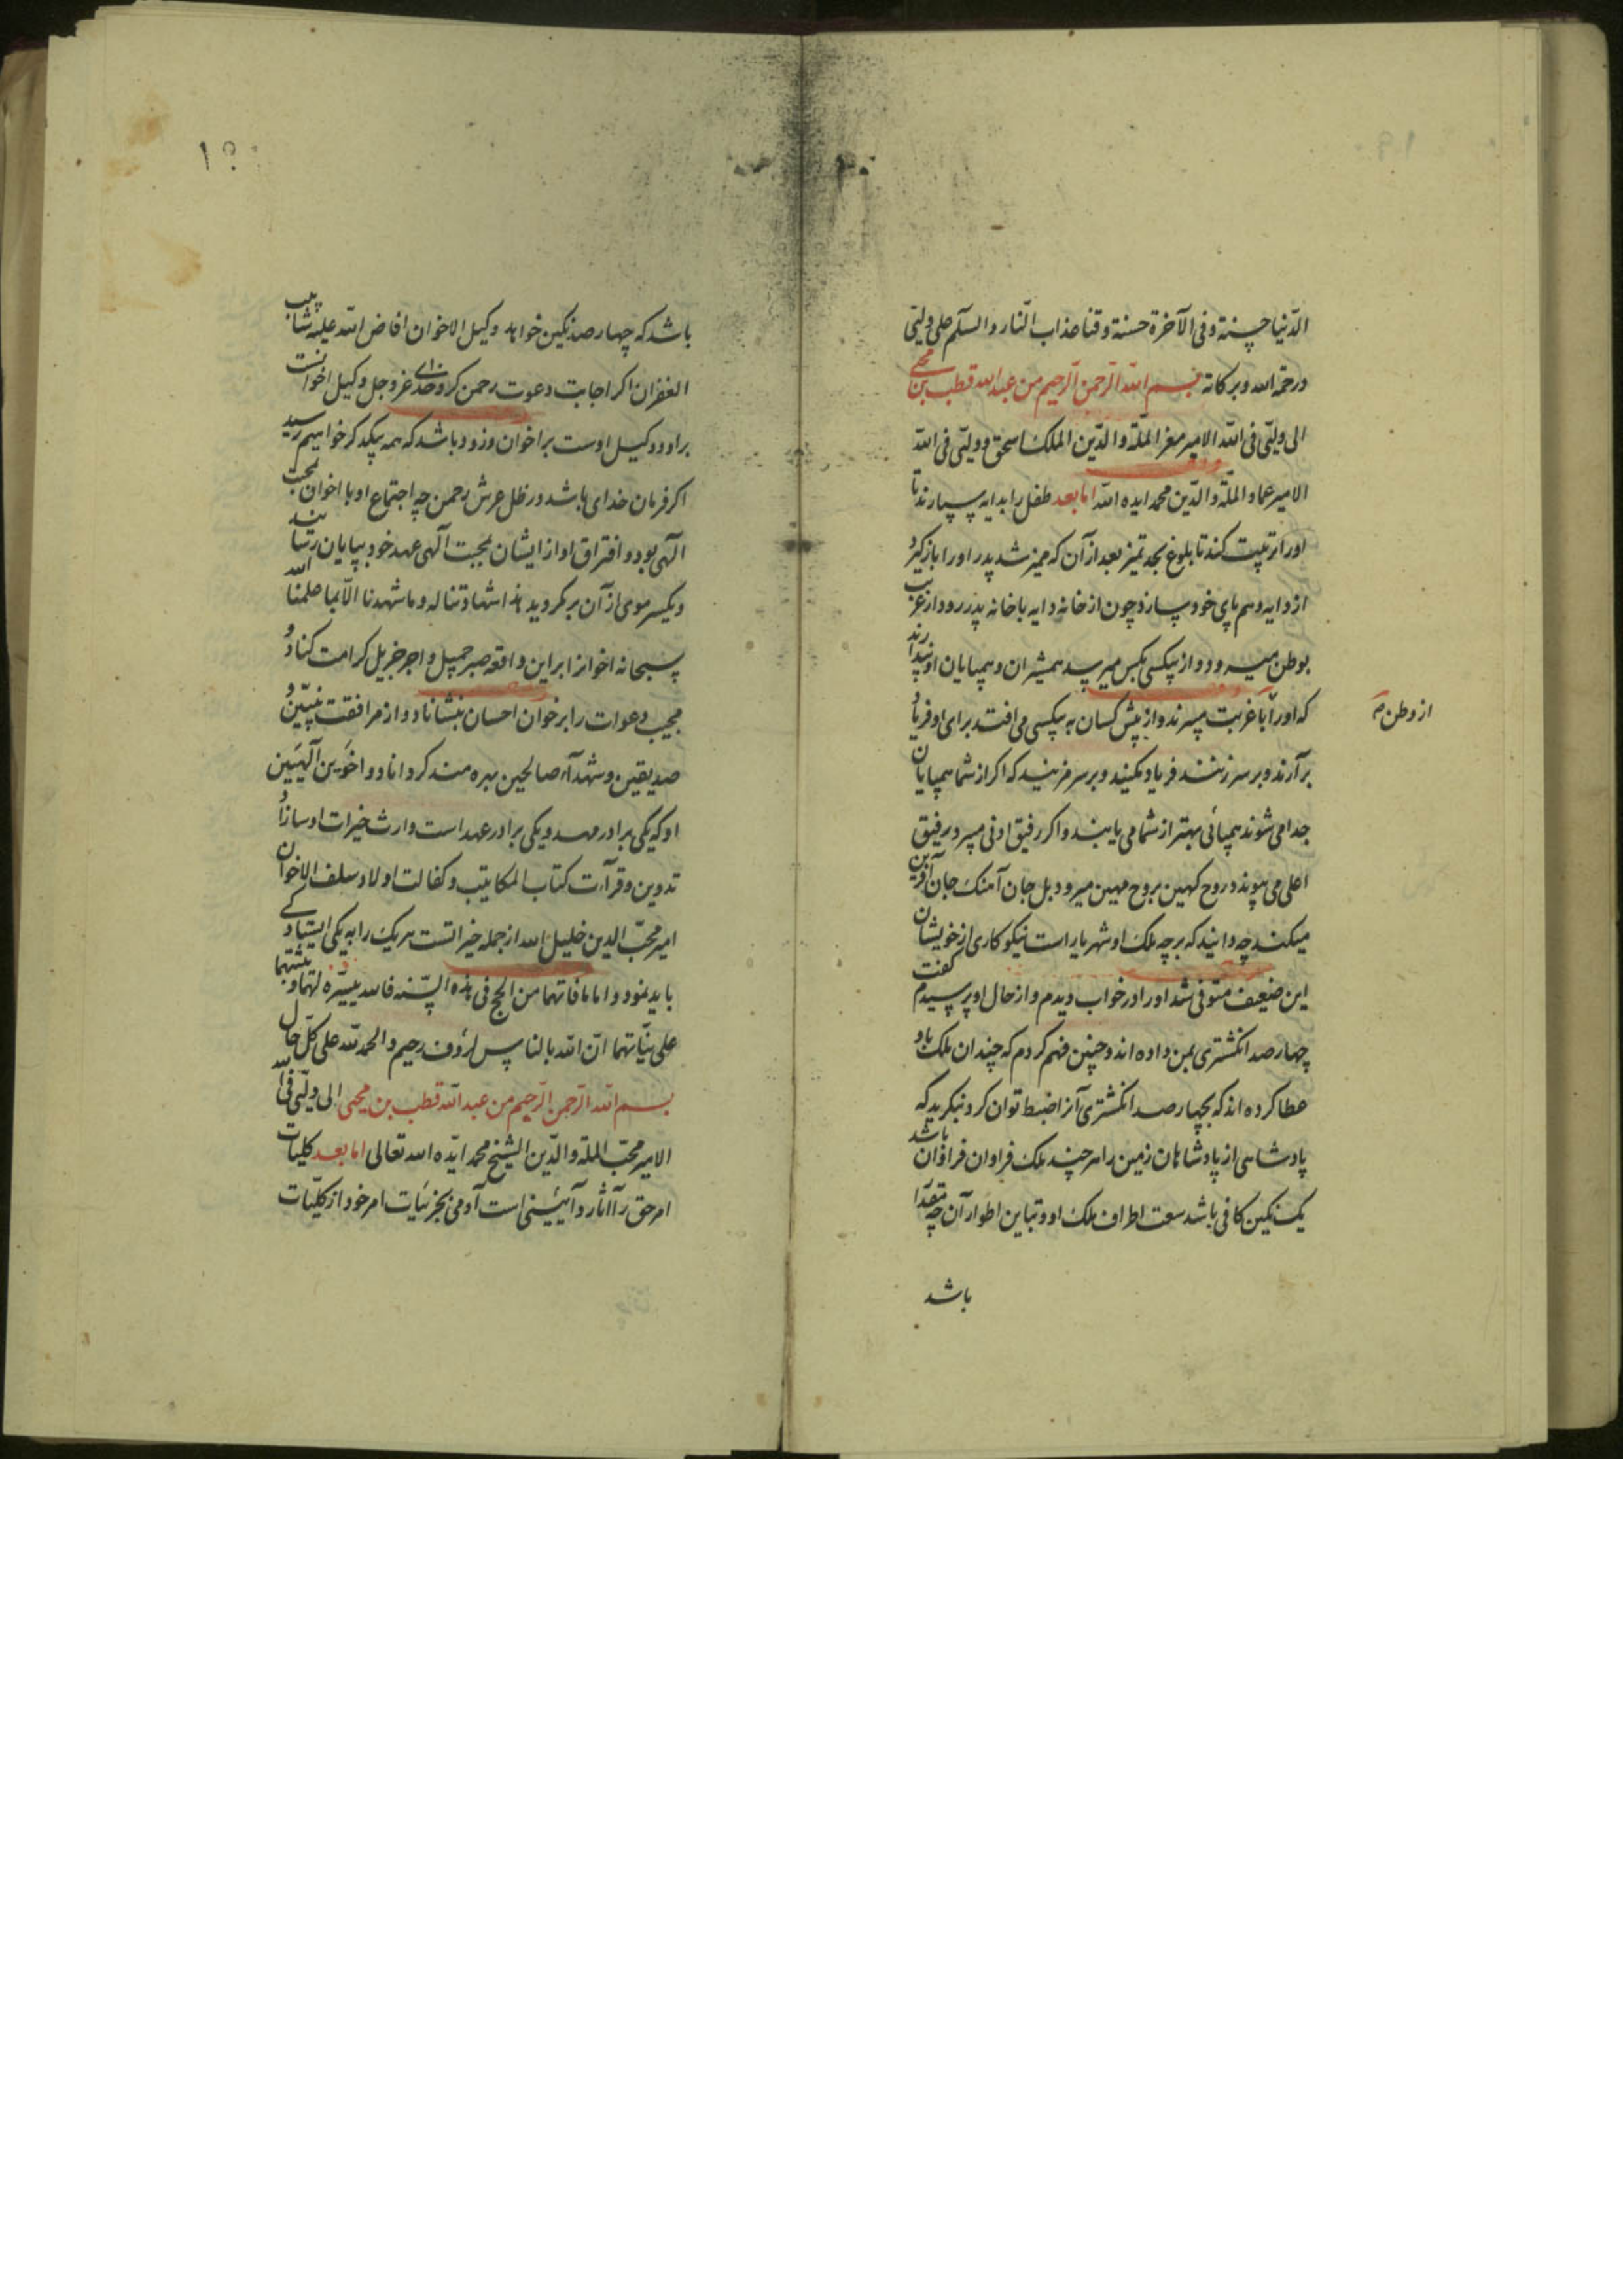 الدّنیا حسنة و فی الآخرة حسنة و قنا عذاب النّار و السلّم علی ولیّی
و رحمة الله و برکاته بسم الله الرّحمن الرّحیم من عبد الله قطب بن محیی
الی ولیّی فی الله الامیر معز الملّة و الدّین الملک اسحق و ولیّی فی الله
الامیر عماد الملّة و الدّین محمد ایده الله اما بعد طفل را بدایه سپارند تا
او را تربیت کند تا بلوغ بحد تمیز بعد از آن که ممیز شد پدر او را باز گیرد
از دایه و هم بپای خود سپارد چون از خانه دایه با خانه پدر رود از غریب
بوطن میرود و از بیکسی بکس میرسد همشیران و همپایان او پندارند
که او را با غربت میبرند و از پیش کسان به بیکسی می افتد برای او فریاد
از وطن صح
بر آرند و بر سر زنند فریاد مکنید و بر سر مزنید که اگر از شما همپایان
جدا می شوند همپائی بهتر از شما می یابند و اگر رفیق ادنی میرود رفیق
اعلی می پیوند د روح کهین بروح مهین میرود بل جان آهنک جان آفرین
میکند چه دانید که بر چه ملک او شهریار است نیکوکاری از خویشان
این ضعیف متوفی شد او را در خواب دیدم و از حال او پرسیدم گفت
چهار صد انکشتری بمن داده اند و چنین فهم کردم که چندان ملک باو
عطا کرده اند که بچهار صد انکشتری آنرا ضبط توان کرد بنگرید که
پادشاهی از پادشاهان زمین را هر چند ملک فراوان فراوان باشد
یک نکین کافی باشد سعت اطراف ملک او و تباین اطوار آن چه مقدار
باشد
باشد که چهار صد نکین خواهد وکیل الاخوان افاض الله علیه شآبیب
الغفران اکر اجابت دعوت رحمن کرد خدای عز و جل وکیل اخوانست
بر او و وکیل اوست بر اخوان و زود باشد که همه بیکدکر خواهیم رسید
اکر فرمان خدای باشد در ظل عرش رحمن چه اجتماع او با اخوان بمحبت
آلهی بود و افتراق او از ایشان بمحبت آلهی عهد خود بپایان رسانید
و یکسر موی از آن بر نکردید هذا شهادتنا له و ما شهدنا الّا بما علمنا الله
سبحانه اخوان را بر این واقعه صبر جمیل و اجر جزیل کرامت کناد و
مجیب دعوات را بر خوان احسان بنشاناد و از مرافقت نبیّین و
صدیقین و شهدآء صالحین بهره مند کرداناد و اخوین آلهیین
او که یکی برادر مهد و یکی برادر عهد است وارث خیرات او سازاد
تدوین و قرآءت کتاب المکاتیب و کفالت اولاد سلف الاخوان
امیر محبّ الدین خلیل الله از جمله خیراتست هر یک را به یکی ایستادکی
باید نمود و اما ما فاتهما من الحج فی هذه السّنه فالله ییسّره لهما و یثبتهما
علی نیّاتهما انّ الله بالناس لرؤف رحیم و الحمد لله علی کلّ حال
بسم الله الرّحمن الرّحیم من عبد الله قطب بن محیی الی ولیّی فی الله
الامیر محبّ الملّة و الدّین الشیخ محمد ایّده الله تعالی اما بعد کلیات
امر حق را آثار و آیینی است آدمی بجزئیات امر خود از کلیّات